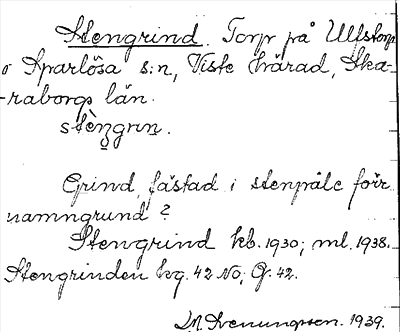 Stengrind. Torp på Ullstorp
Sparlösa s:n, Viste härad, Ska-
-raborgs län.
stèngrin.
Grind, fästad i stenpåle förr
namngrund?
Stengrind kb. 1930; ml. 1938.
Stengrinden hg. 42 NO; G. 42.
Svenungsson. 1939.